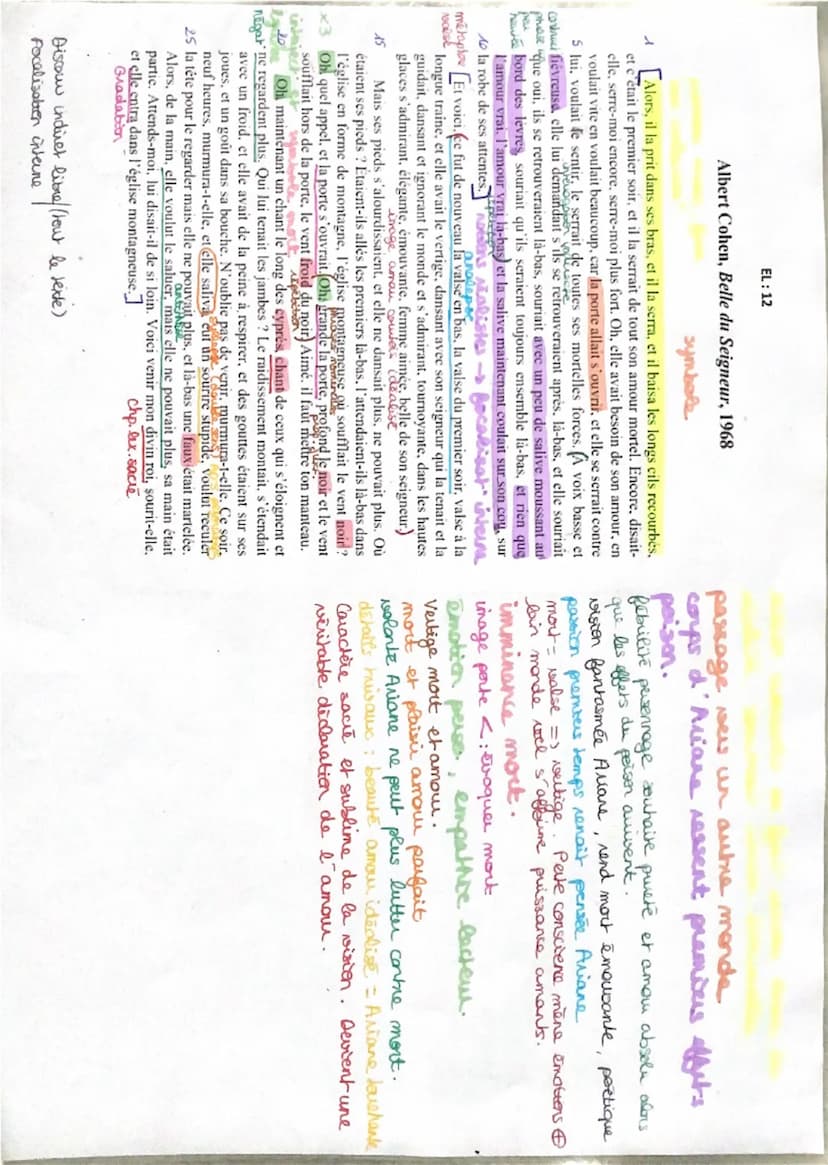 EL : 12
Albert Cohen, Belle du Seigneur, 1968
symbole
1 Alors, il la prit dans ses bras, et il la serra, et il baisa les longs cils recourbés,
et c'était le premier soir, et il la serrait de tout son amour mortel. Encore, disait-
elle, serre-moi encore, serre-moi plus fort. Oh, elle avait besoin de son amour, en
voulait vite en voulait beaucoup, car la porte allait s'ouvrir, et elle se serrait contre
5 lui, voulait le sentir, le serrait de toutes ses mortelles forces. À voix basse et
fiévreuse, elle lui demandait s'ils se retrouveraient après, là-bas, et elle souriait
que oui, ils se retrouveraient là-bas, souriait avec un peu de salive moussant au
bord des lèvres, souriait qu'ils seraient toujours ensemble là-bas, et rien que
l'amour vrai, l'amour vrai là-bas, et la salive maintenant coulait sur son cou, sur
10 la robe de ses attentes.
notations réalistes → focalisat° interne
analepse
métaphore
valse
Et voici, ce fut de nouveau la valse en bas, la valse du premier soir, valse à la
longue traîne, et elle avait le vertige, dansant avec son seigneur qui la tenait et la
guidait, dansant et ignorant le monde et s'admirant, tournoyante, dans les hautes
glaces s'admirant, élégante, émouvante, femme aimée, belle de son seigneur.
image amour courtois idéalisé
15 Mais ses pieds s'alourdissaient, et elle ne dansait plus, ne pouvait plus. Où
étaient ses pieds ? Étaient-ils allés les premiers là-bas, l'attendaient-ils là-bas dans
l'église en forme de montagne, l'église montagneuse où soufflait le vent noir ?
x3 Oh, quel appel, et la porte s'ouvrait. Oh, grande la porte, profond le noir et le vent
soufflait hors de la porte, le vent froid du noir. Aimé, il faut mettre ton manteau.
symbole mort répétition
20 Oh, maintenant un chant le long des cyprès, chant de ceux qui s'éloignent et
ne regardent plus. Qui lui tenait les jambes ? Le raidissement montait, s'étendait
avec un froid, et elle avait de la peine à respirer, et des gouttes étaient sur ses
joues, et un goût dans sa bouche. N'oublie pas de venir, murmura-t-elle. Ce soir,
neuf heures, murmura-t-elle, et elle saliva, eut un sourire stupide, voulut reculer
25 la tête pour le regarder mais elle ne pouvait plus, et là-bas une faux était martelée.
antithèse
Alors, de la main, elle voulut le saluer, mais elle ne pouvait plus, sa main était
partie. Attends-moi, lui disait-il de si loin. Voici venir mon divin roi, sourit-elle,
et elle entra dans l'église montagneuse.
Gradation
chp.lex.sacré
Discours indirect libre/(tout le texte)
Focalisation interne
passage vers un autre monde
corps d'Ariane ressent premiers effets
poison.
fébrilité personnage souhaite pureté et amour absolu alors
que les effets du poison arrivent.
vision fantasmée Ariane, rend mort émouvante, poétique
passion premiers temps renaît pensée Ariane
mort = valse => vertige. Perte conscience mène émotions ⊕
loin monde réel s'affirme puissance amants.
imminence mort.
image porte <: évoquer mort
émotion perso, empathie lecteur.
Vertige mort et amour.
mort et plaisir amour parfait
volonté Ariane ne peut plus lutter contre mort.
détails triviaux : beauté amour idéalisé = Ariane touchante
Caractère sacré et sublime de la vision. Devient une
véritable déclaration de l'amour.